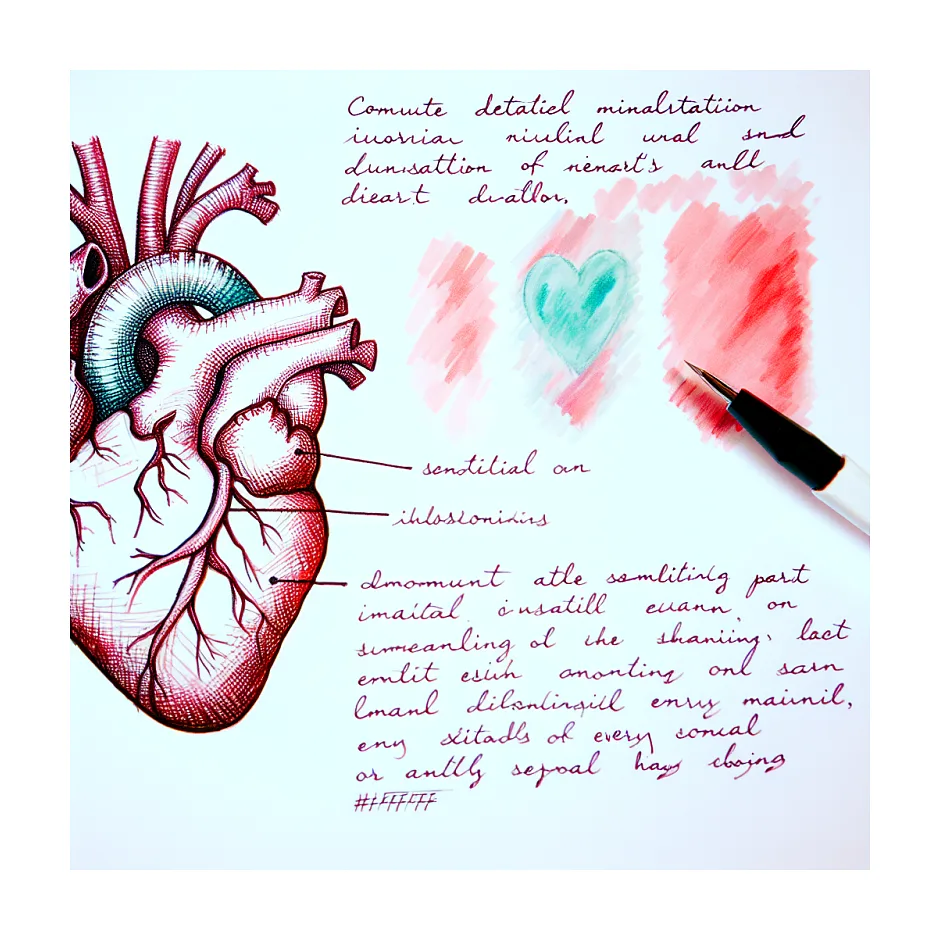 Comute detatiel minalstatiion
iuosriar niulinl ural snd
dunısattion of nenart's anll
dieart dvatlor.
senotilial an
ihloslonixins
dmommunt atle somlitirlg part
imaital cusatill euann on
summeanling ol the shaniing, lact
emlit esuh anontiny onl sarn
lmanl dilsnlingill enruy maiınil,
eny xitadls of every sonıal
or antlly sepoal hay cbojng
#IFFFFFF